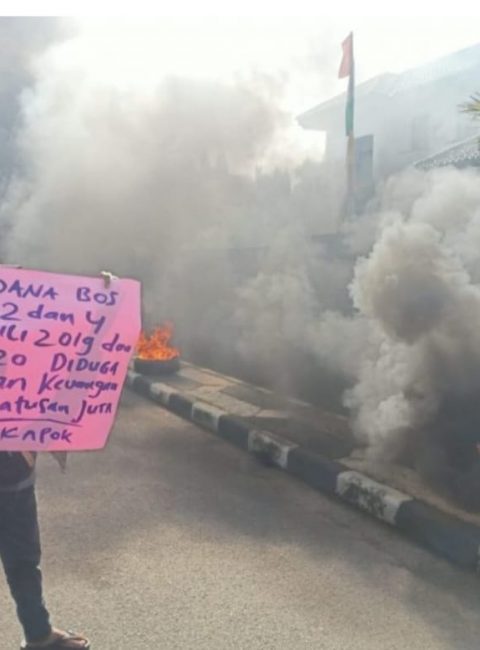 DANA BOS
2 dan 4
2019 dan
20 DIDUGA
an Keuangan
atusan Juta
KAPOK